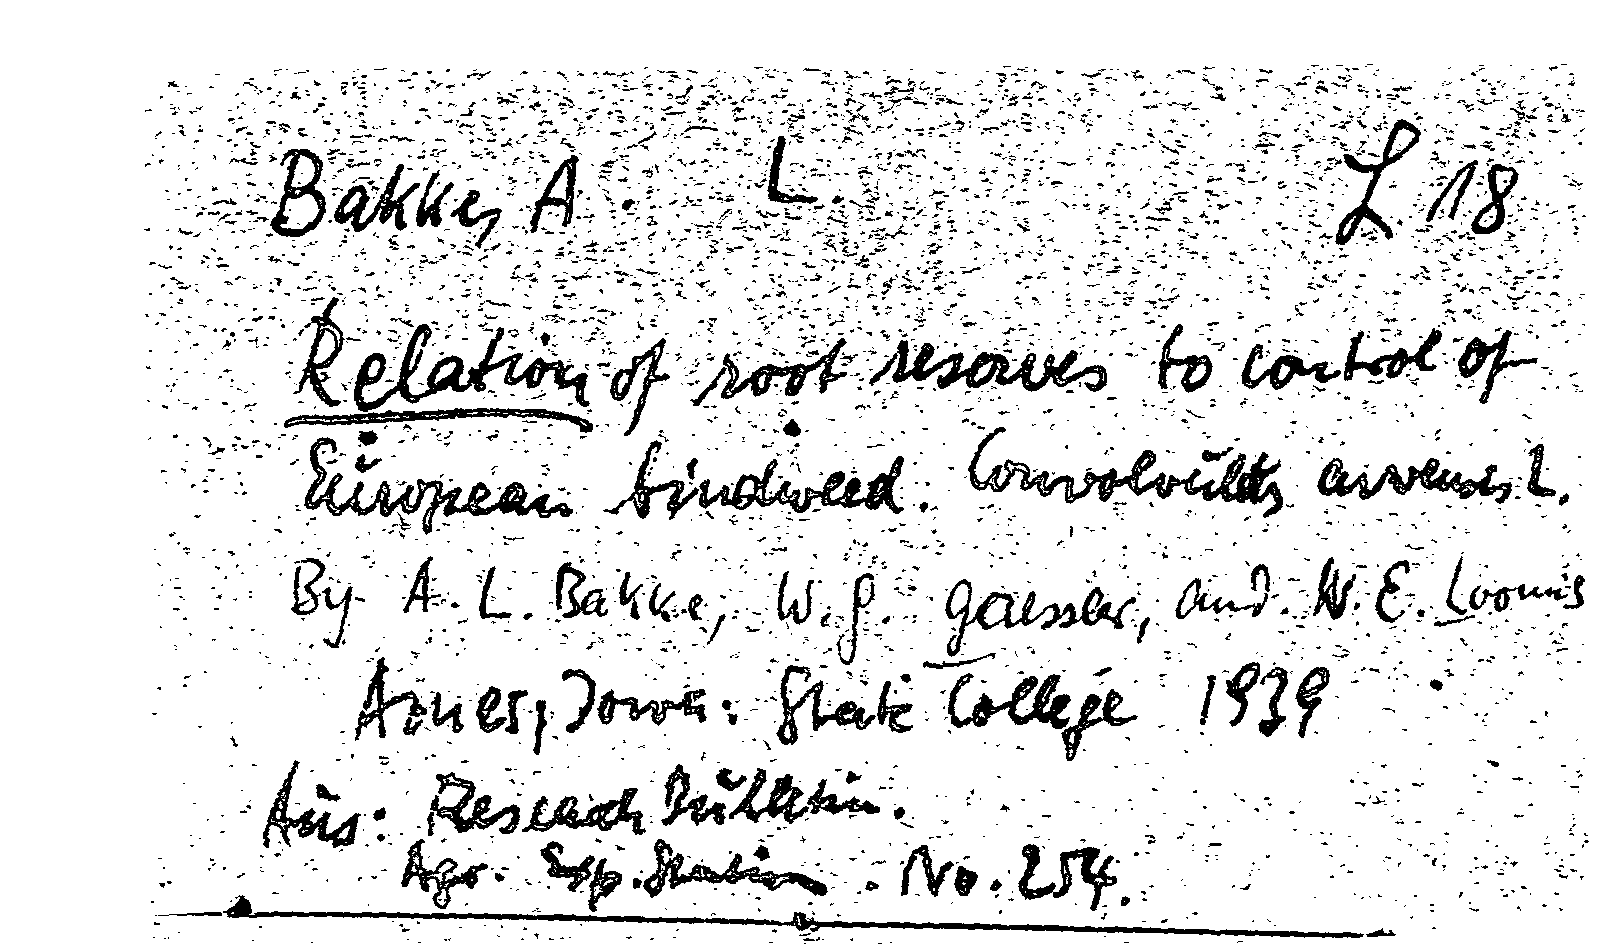 Bakke, A. L. L 18
Relation of root reserves to control of
European bindweed. Convolvulus arvensis L.
By A. L. Bakke, W. G. Gaessler, and W. E. Loomis
Ames, Iowa: State College 1939
Aus: Research Bulletin.
Agr. Exp. Station. No. 254.